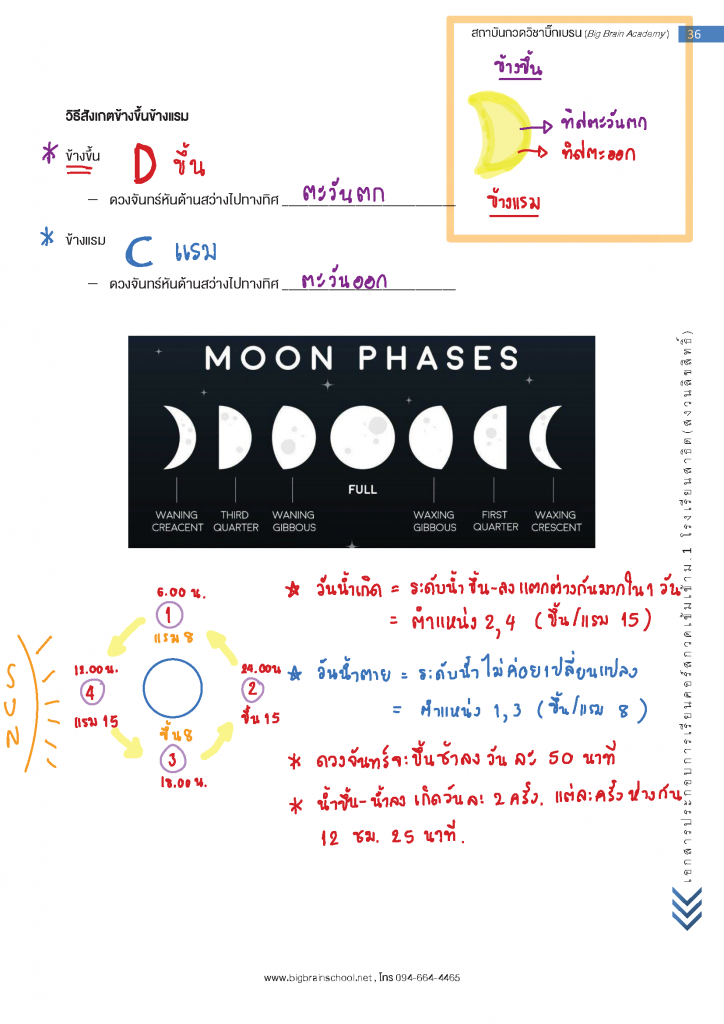 สถาบันกวดวิชาบิ๊กเบรน (Big Brain Academy) 36
ข้างขึ้น
ทิศตะวันตก
ทิศตะออก
ข้างแรม
วิธีสังเกตข้างขึ้นข้างแรม
* ข้างขึ้น D ขึ้น
– ดวงจันทร์หันด้านสว่างไปทางทิศ ตะวันตก
* ข้างแรม C แรม
– ดวงจันทร์หันด้านสว่างไปทางทิศ ตะวันออก
MOON PHASES
FULL
WANING CREACENT
THIRD QUARTER
WANING GIBBOUS
WAXING GIBBOUS
FIRST QUARTER
WAXING CRESCENT
6.00 น.
1
แรม 8
12.00 น.
4
แรม 15
24.00น
2
ขึ้น 15
ขึ้น 8
3
18.00 น.
SUN
☆ วันน้ำเกิด = ระดับน้ำ ขึ้น-ลง แตกต่างกันมากใน 1 วัน
= ตำแหน่ง 2,4 (ขึ้น/แรม 15)
☆ วันน้ำตาย = ระดับน้ำ ไม่ค่อยเปลี่ยนแปลง
= ตำแหน่ง 1,3 (ขึ้น/แรม 8)
* ดวงจันทร์จะขึ้นช้าลง วัน ละ 50 นาที
* น้ำขึ้น-น้ำลง เกิดวันละ 2 ครั้ง. แต่ละครั้ง ห่างกัน
12 ชม. 25 นาที.
เอกสารประกอบการเรียนคอร์สกวดเข้มเข้าม.1 โรงเรียนสาธิต(สงวนลิขสิทธิ์)
www.bigbrainschool.net , โทร 094-664-4465